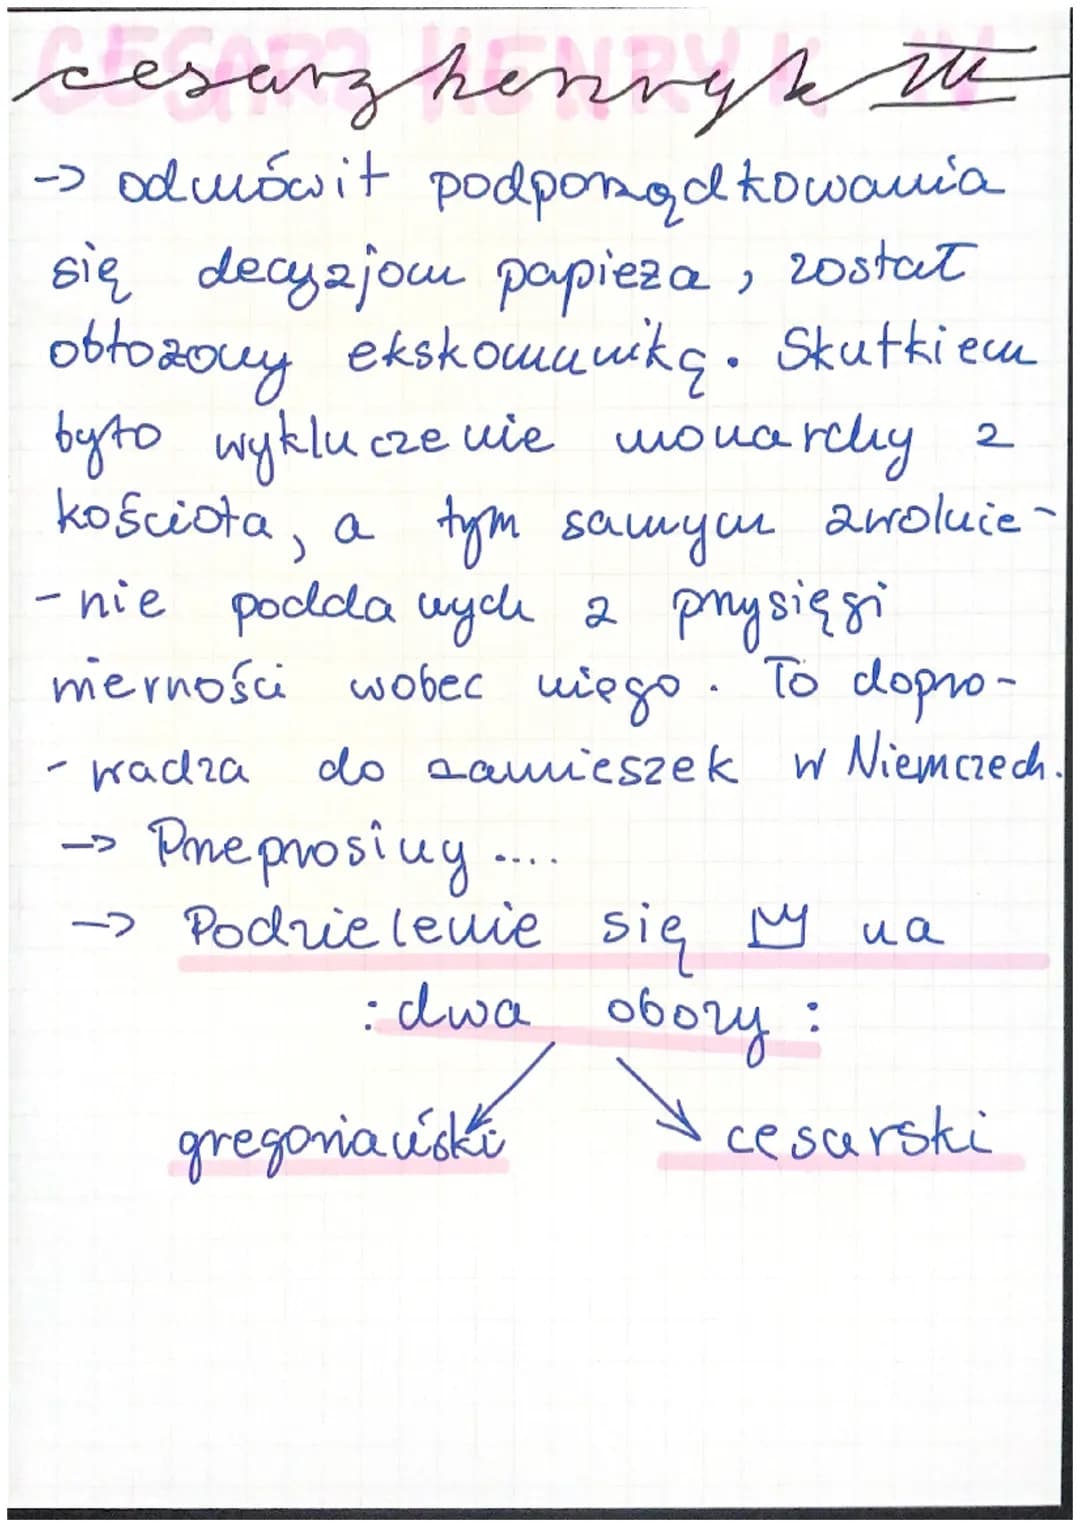 CESARZ HENRYK IV
cesarz henryk IV
-> odmówił podporządkowania
się decyzjom papieża, został
obłożony ekskomuniką. Skutkiem
było wykluczenie monarchy z
kościoła, a tym samym zwolnie-
-nie poddanych z przysięgi
wierności wobec niego. To dopro-
-wadza do zamieszek w Niemczech.
-> Przeprosiny....
-> Podzielenie się na
: dwa obozy :
gregoriański cesarski